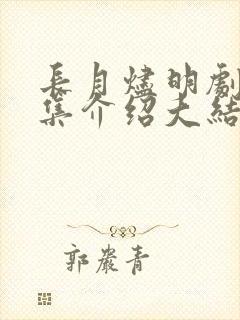 長月燼明劇
集介紹大結
郭嚴青